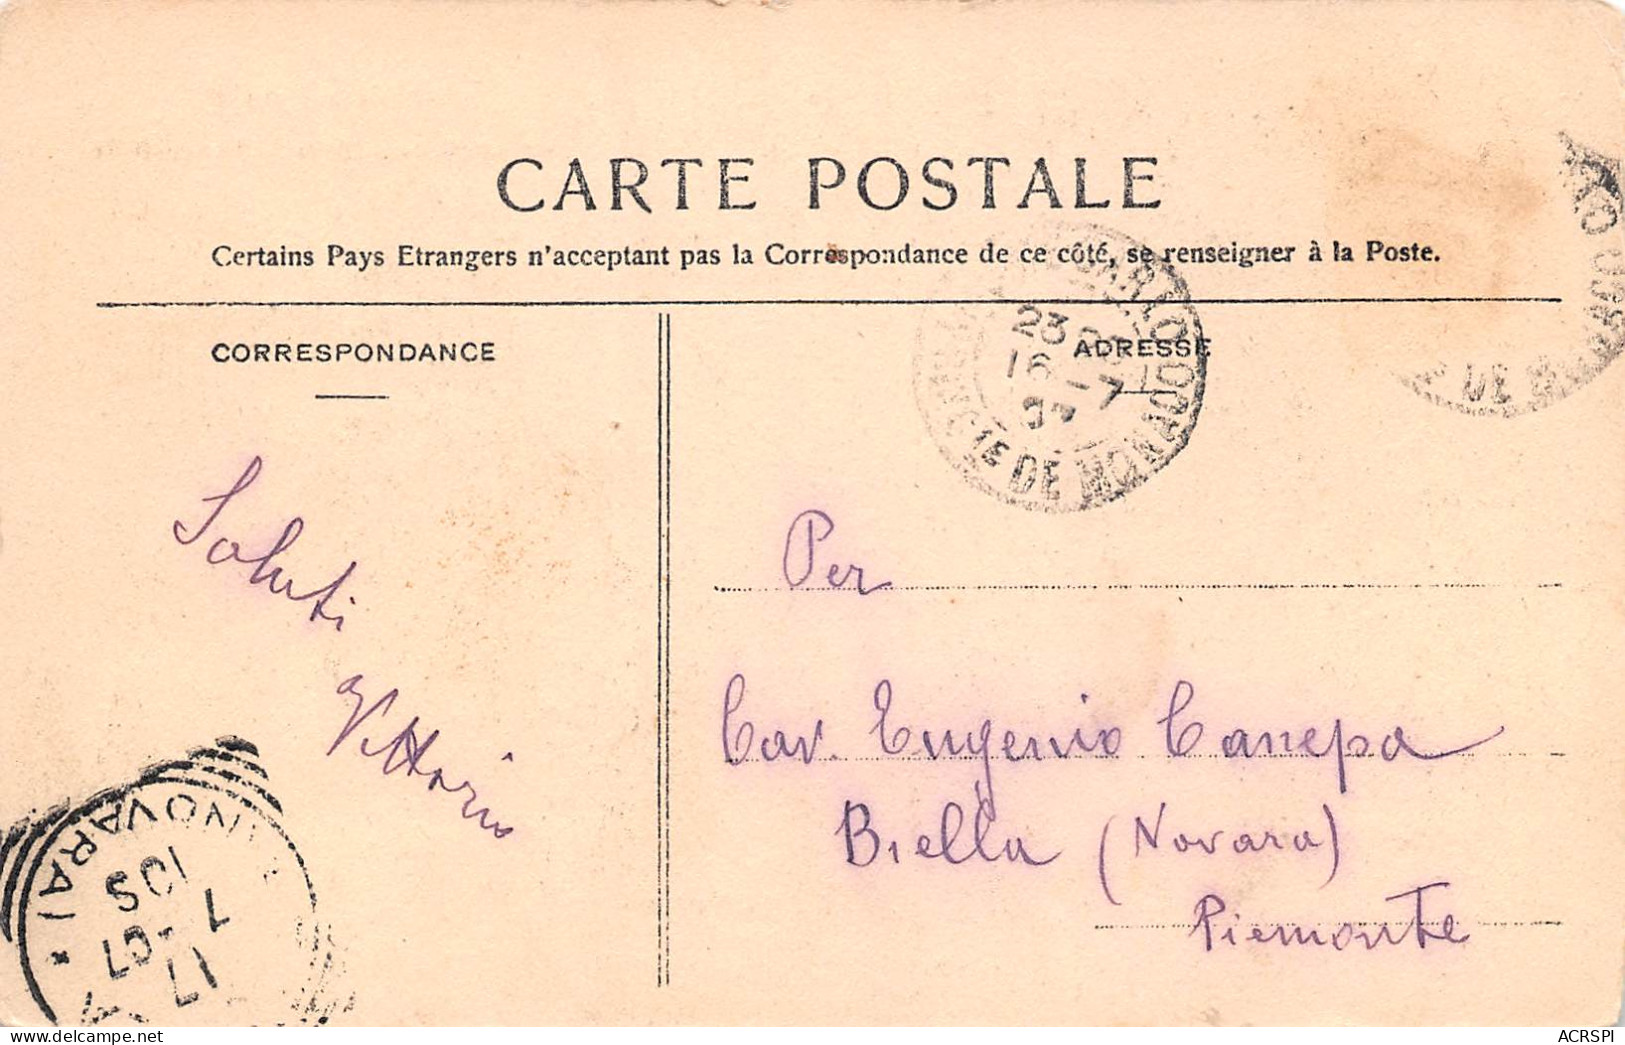 CARTE POSTALE
Certains Pays Etrangers n'acceptant pas la Correspondance de ce côté, se renseigner à la Poste.
CORRESPONDANCE
ADRESSE
23
16 -7
DE MONACO
DE
Saluti
Vittorio
Per
Cav. Eugenio Canepa
Biella (Novara)
Piemonte
(NOVARA) *
10S
7
17 - 07
ACRSPI